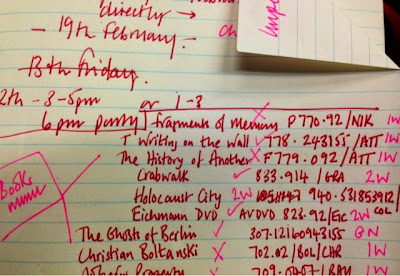 directly →
- 19th February. -
13th Friday.
12th - 3-5pm or 1-3
6pm party
Fragments of Memory P770.92/NIK 1W
T Writing on the Wall ✓ 778.243155/ATT 1W
The History of Another X F779.092/ATT 1W
Crabwalk ✓ 833.914/GRA 2W
Holocaust City 2W 940.531853912/
COL
Eichmann DVD ✓ AVDVD 823.92/EIC 2W
The Ghosts of Berlin ✓ 307.12160943155 GN
Christian Boltanski X 702.02/BOL/CHR 1W
Property X /BAN 1W
Books